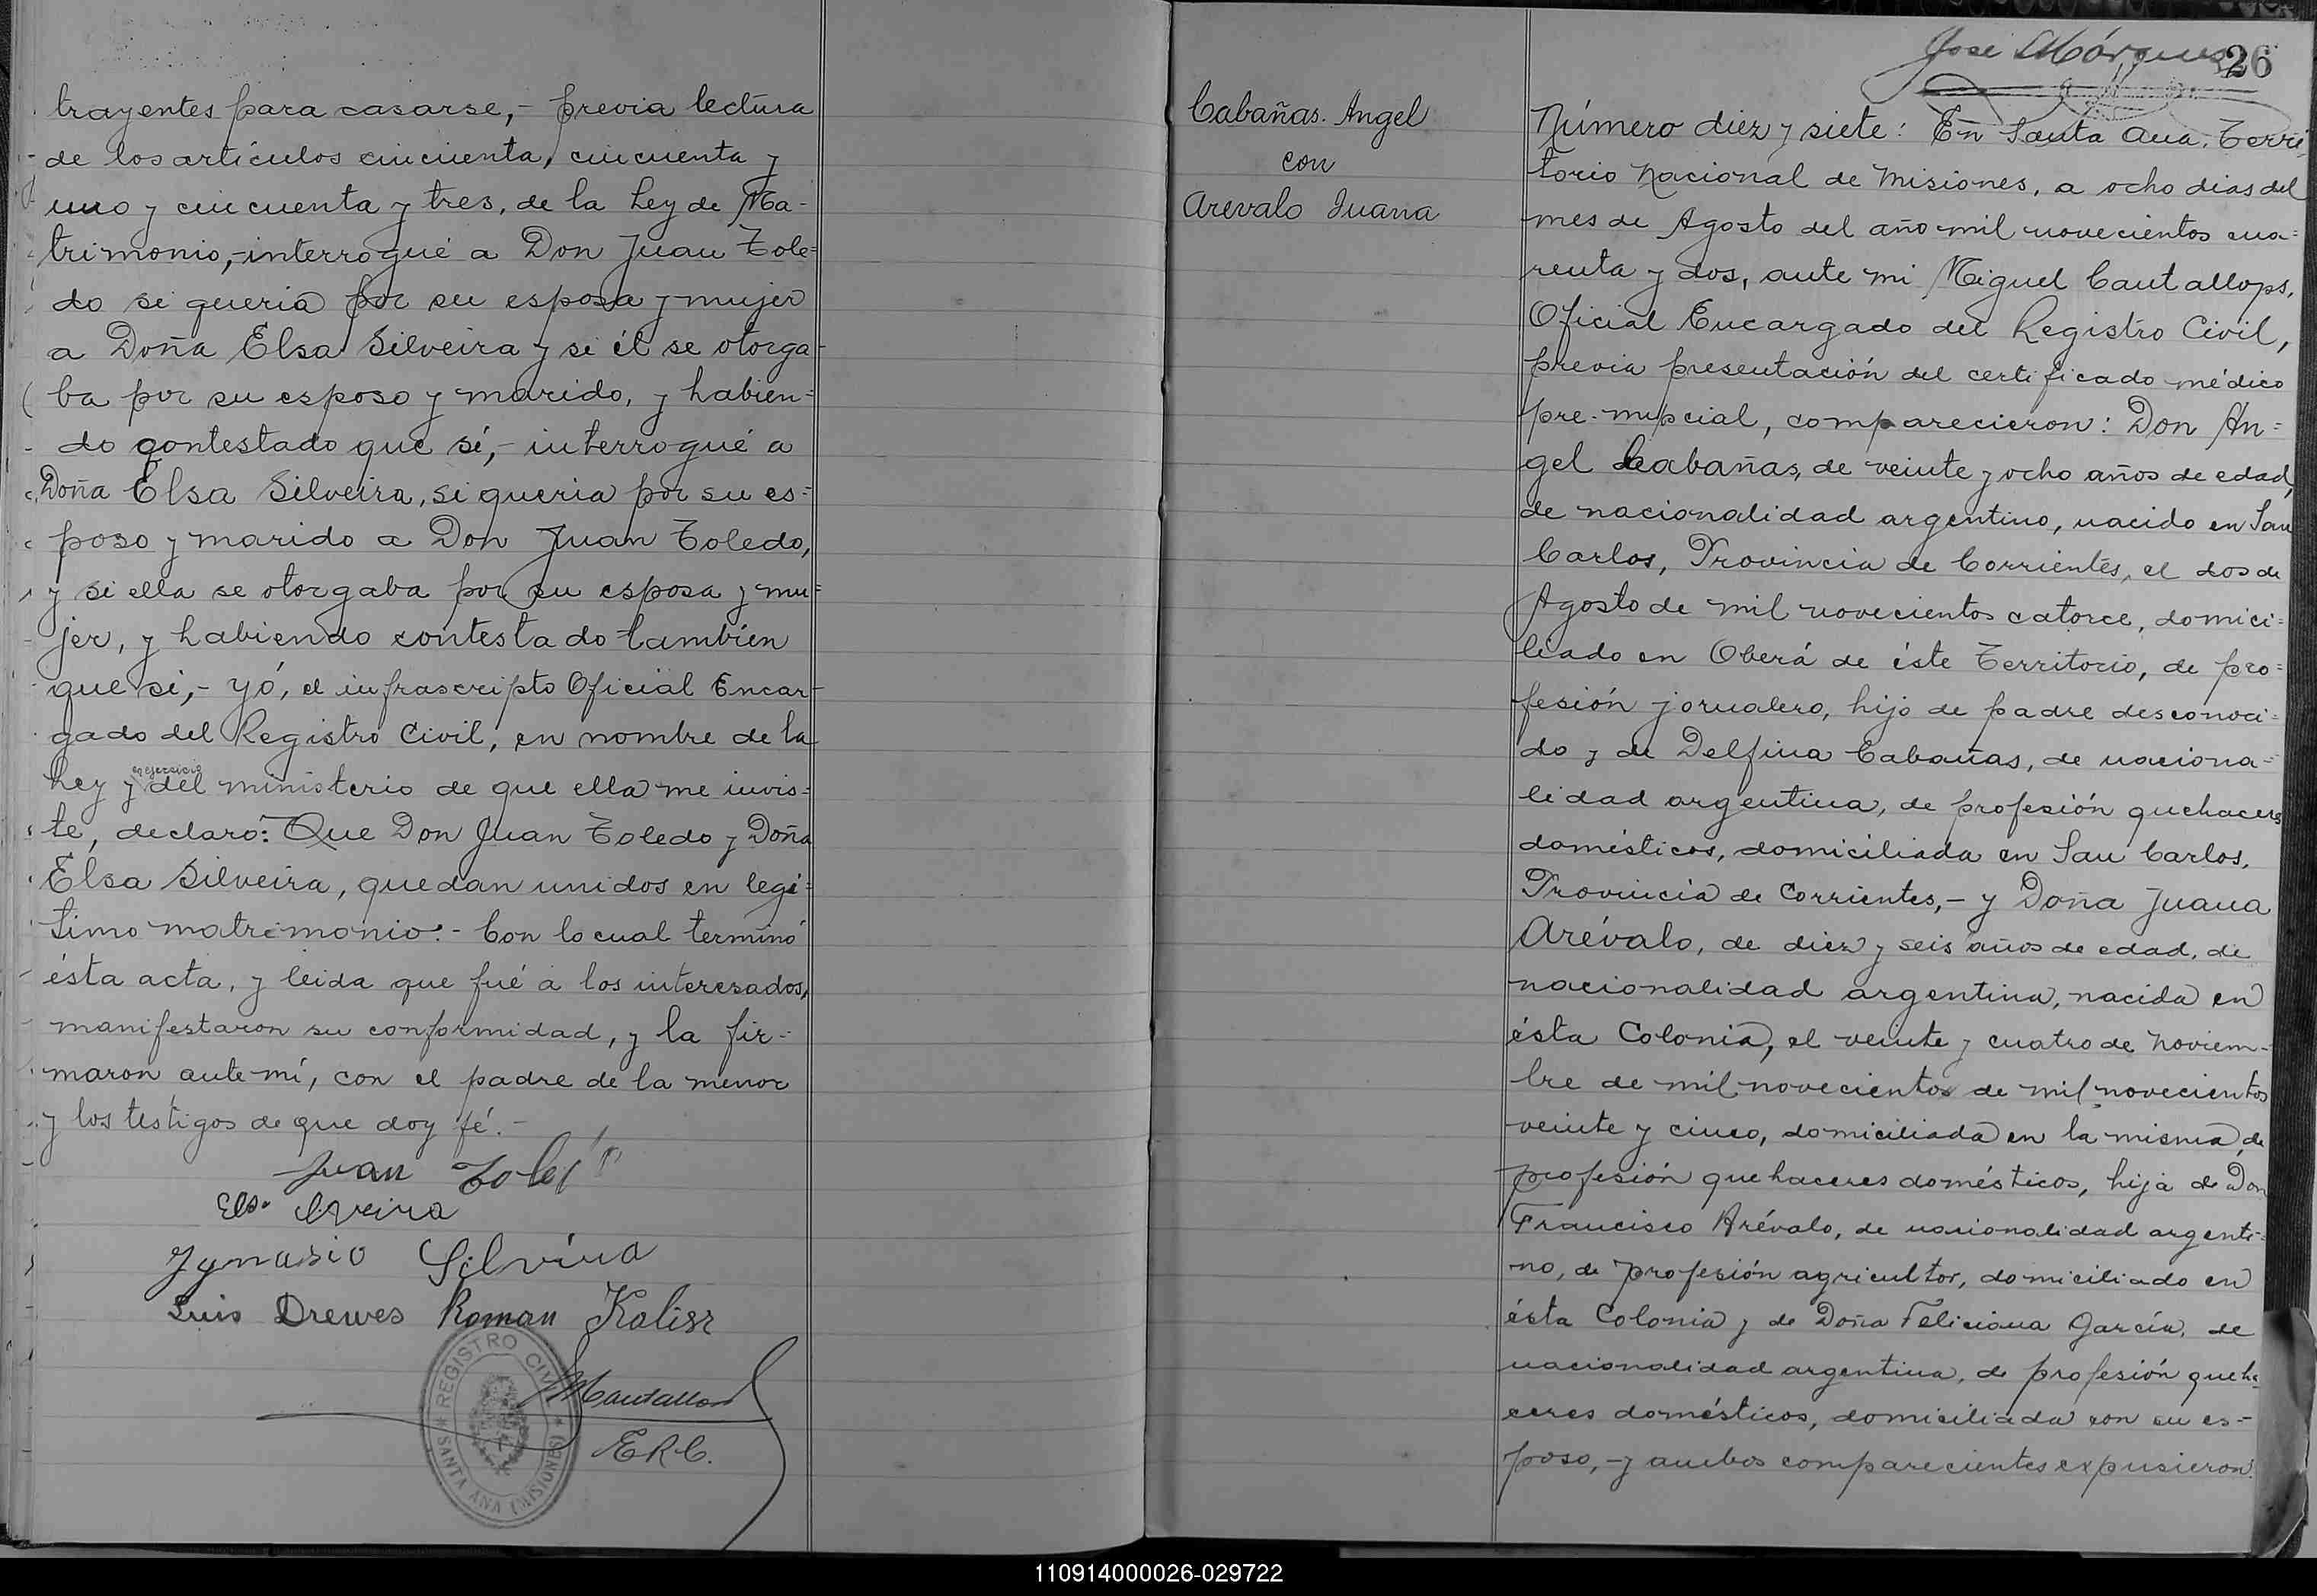 trayentes para casarse,- previa lectura
de los artículos cincuenta, cincuenta y
uno y cincuenta y tres, de la Ley de Ma-
trimonio,-interrogué a Don Juan Tole=
do si queria por su esposa y mujer
a Doña Elsa Silveira y si él se otorga-
ba por su esposo y marido, y habien=
do contestado que sí,- interrogué a
Doña Elsa Silveira, si queria por su es=
poso y marido a Don Juan Toledo,
y si ella se otorgaba por su esposa y mu=
jer, y habiendo contestado también
que si,- yó, el infrascripto Oficial Encar-
gado del Registro Civil, en nombre de la
en ejercicio
Ley y del ministerio de que ella me invis=
te, declaro: Que Don Juan Toledo y Doña
Elsa Silveira, quedan unidos en legí=
timo matrimonio.- Con lo cual terminó
ésta acta, y leida que fué a los interesados,
manifestaron su conformidad, y la fir-
maron ante mí, con el padre de la menor
y los testigos de que doy fé.-
Juan
Elsa
Ygnasio Silvéira
Luis Drewes Roman Kalisz
REGISTRO CIVIL
* SANTA ANA (MISIONES) *
MCantallops
E.R.C.
Jose Márques
26
Cabañas. Angel
con
Arevalo Juana
Número diez y siete: En Santa Ana, Terri-
torio Nacional de Misiones, a ocho dias del
mes de Agosto del año mil novecientos cua=
renta y dos, ante mi Miguel Cantallops,
Oficial Encargado del Registro Civil,
previa presentación del certificado médico
pre-nupcial, comparecieron: Don An=
gel Cabañas, de veinte y ocho años de edad,
de nacionalidad argentino, nacido en San
Carlos, Provincia de Corrientes, el dos de
Agosto de mil novecientos catorce, domici=
liado en Oberá de éste Territorio, de pro=
fesión jornalero, hijo de padre desconoci=
do y de Delfina Cabañas, de naciona=
lidad argentina, de profesión quehaceres
domésticos, domiciliada en San Carlos,
Provincia de Corrientes,- y Doña Juana
Arévalo, de diez y seis años de edad, de
nacionalidad argentina, nacida en
ésta Colonia, el veinte y cuatro de Noviem-
bre de mil novecientos de mil novecientos
veinte y cinco, domiciliada en la misma, de
profesión quehaceres domésticos, hija de Don
Francisco Arévalo, de nacionalidad argenti=
no, de profesión agricultor, domiciliado en
ésta Colonia y de Doña Feliciana García, de
nacionalidad argentina, de profesión queha
ceres domésticos, domiciliada con su es-
poso,-y ambos comparecientes expusieron:
110914000026-029722